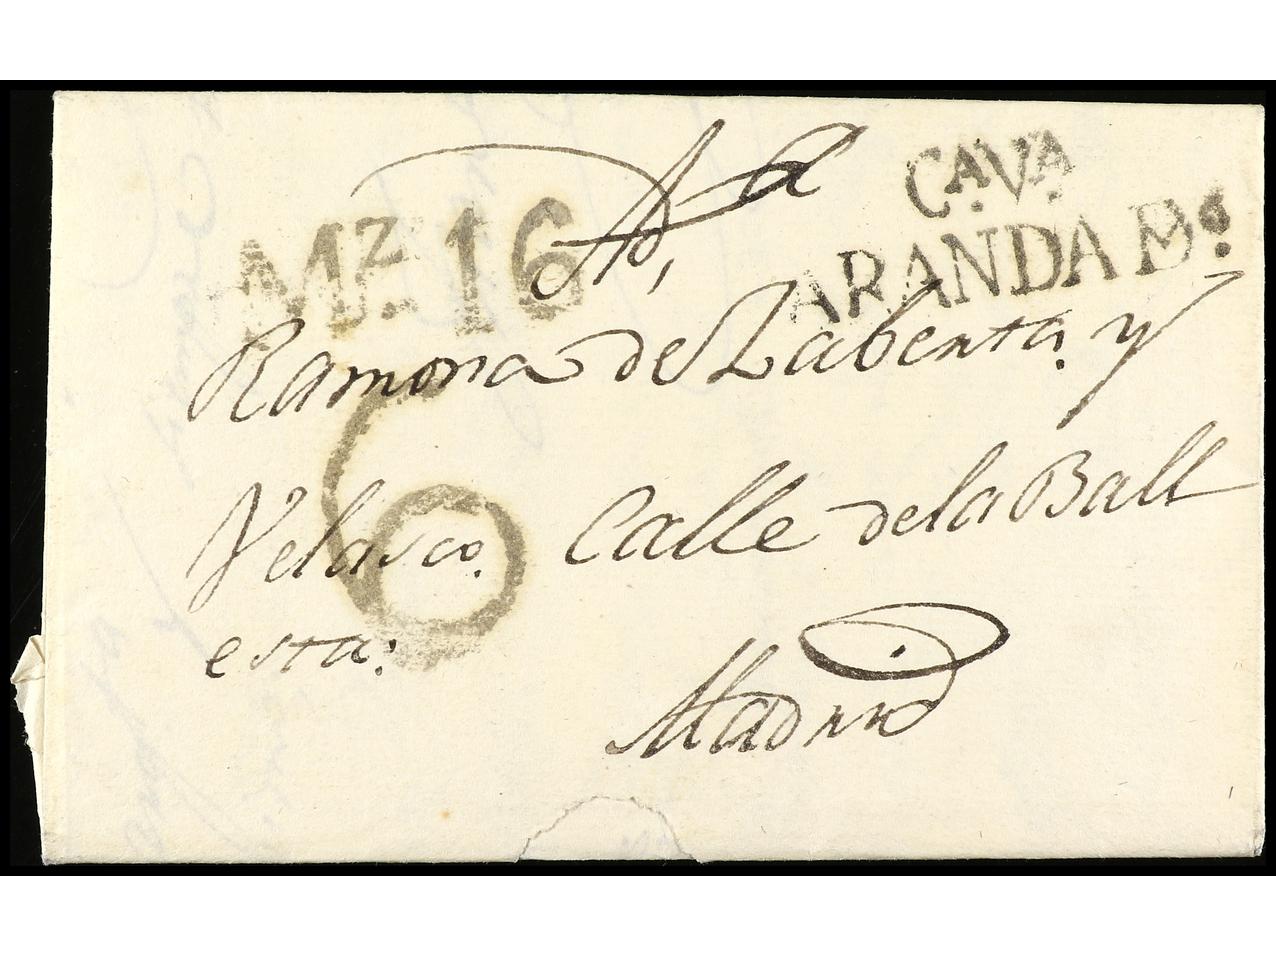 A Dª
CA.VA.
Mz. 16
ARANDA Dº.
Ramona de Labenta. y
6
Velasco. Calle de la Ball
esta:
Madrid